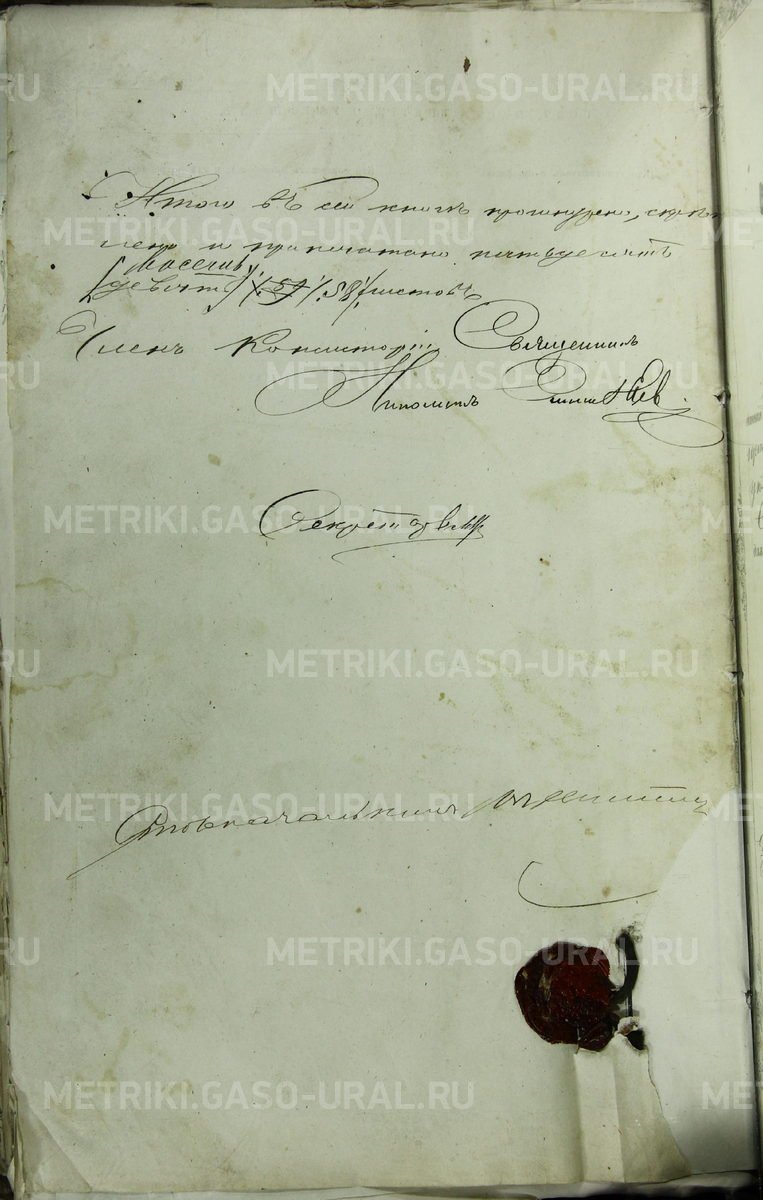 Итого въ сей книгѣ прошнурено, скрѣп
лено и припечатано пятьдесятъ
[восемь]
[девять] /.59/ /.58/ листовъ
Членъ Консисторіи Священникъ
Ипполитъ
Секретарь
Столоначальникъ
METRIKI.GASO-URAL.RU